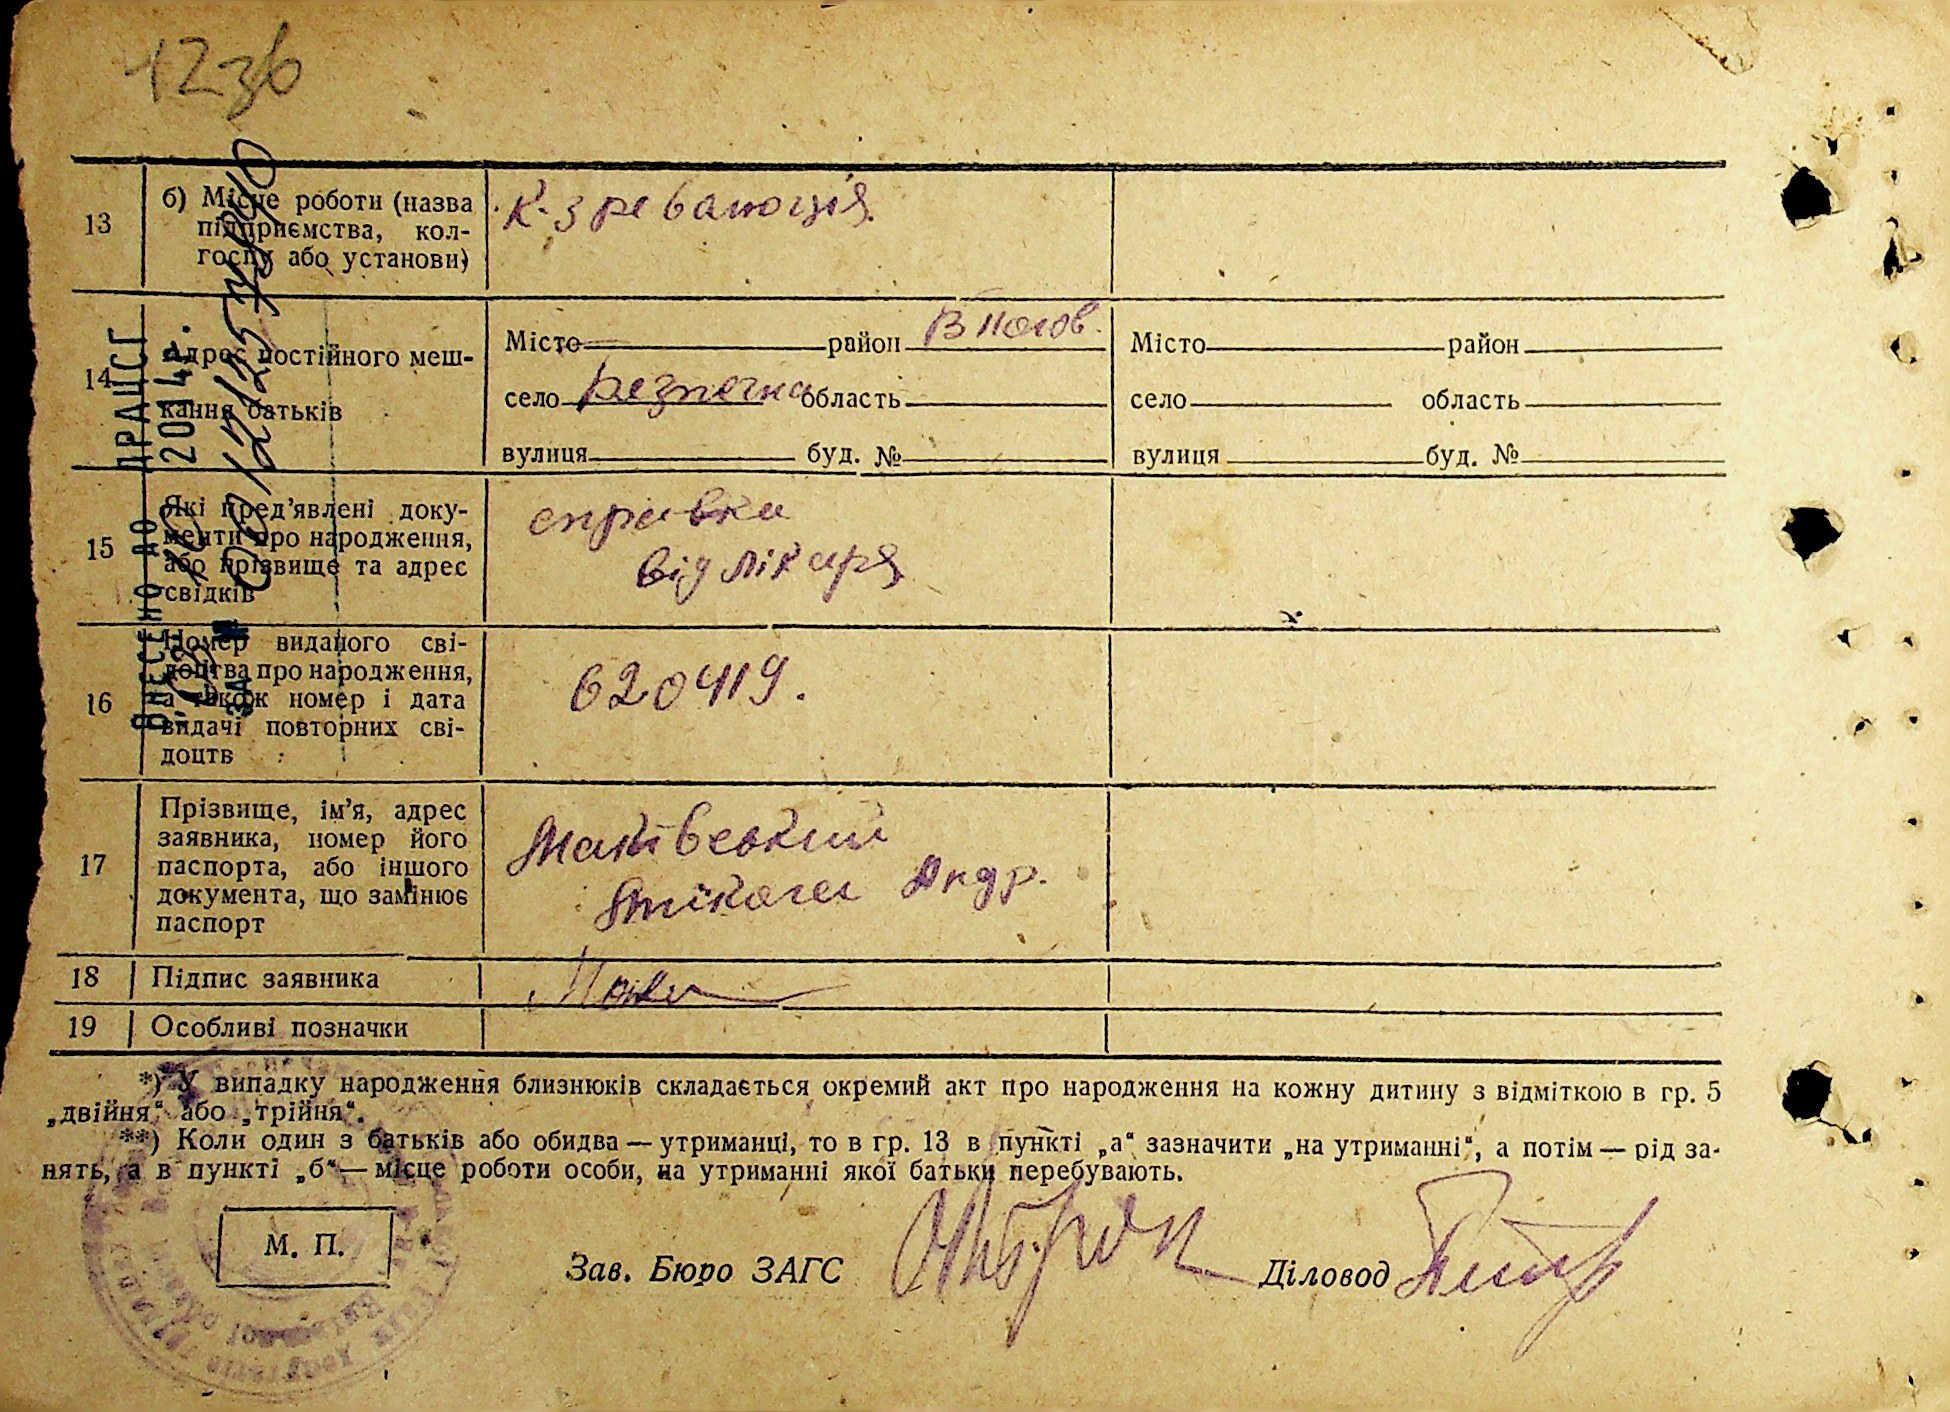 12зв
13
б) Місце роботи (назва
підприємства, кол-
госпу або установи)
К-з революція
14
Адрес постійного меш-
кання батьків
Місто район В Полов.
село Безпечна область
вулиця буд. №
Місто район
село область
вулиця буд. №
15
Які пред’явлені доку-
менти про народження,
або прізвище та адрес
свідків
справка
від лікаря
16
Номер виданого сві-
доцтва про народження,
а також номер і дата
видачі повторних сві-
доцтв
620419.
17
Прізвище, ім’я, адрес
заявника, номер його
паспорта, або іншого
документа, що замінює
паспорт
Маківський
Микола Андр.
18
Підпис заявника
19
Особливі позначки
ВНЕСЕНО ДО ДРАЦСГ
2014.
ЗА №
*) У випадку народження близнюків складається окремий акт про народження на кожну дитину з відміткою в гр. 5
„двійня“ або „трійня“.
**) Коли один з батьків або обидва — утриманці, то в гр. 13 в пункті „а“ зазначити „на утриманні“, а потім — рід за-
нять, а в пункті „б“ — місце роботи особи, на утриманні якої батьки перебувають.
М. П.
Зав. Бюро ЗАГС
Діловод